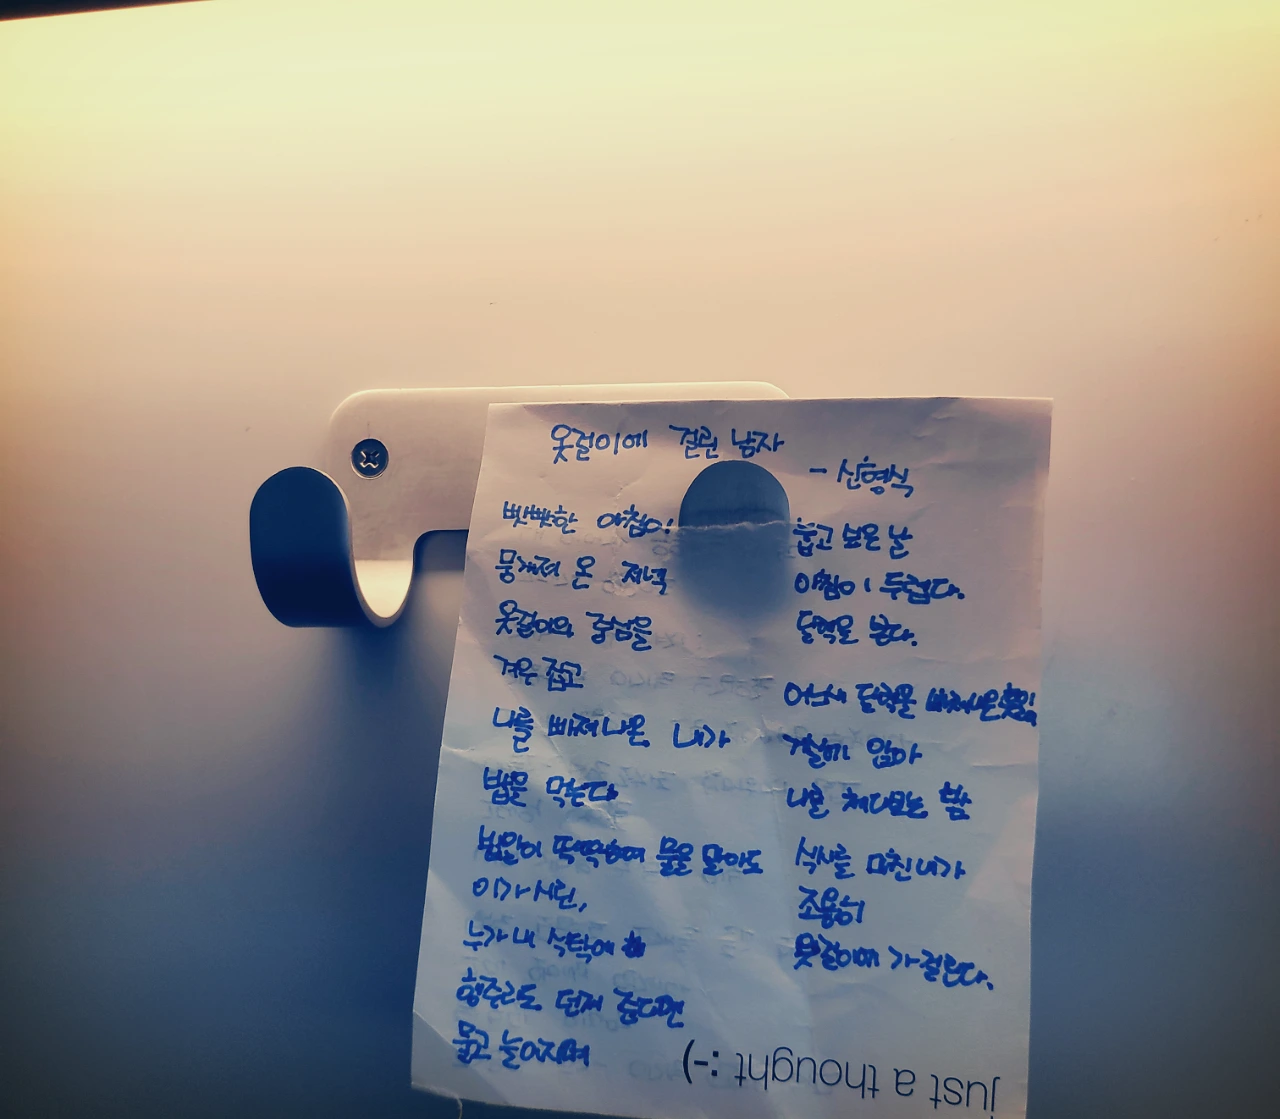 옷걸이에 걸린 남자
- 신형식
빳빳한 아침이
뭉개져 온 저녁
옷걸이의 중심을
겨우 잡고
나를 빠져나온 내가
밥을 먹는다
밥알이 떡떡하여 물을 말아도
이가 시린,
누가 내 식탁에
행주라도 던져 준다면
물고 늘어지며
눕고 싶은 날
아침이 두렵다.
달력을 본다.
어느새 달력을 빠져나온
거실에 앉아
나를 쳐다보는 밤
식사를 마친 내가
조용히
옷걸이에 가 걸린다.
just a thought :-)